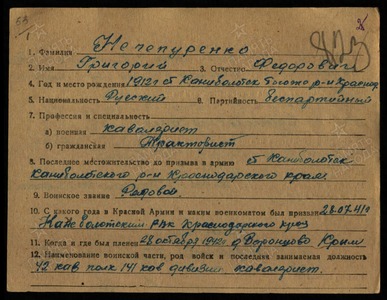 1. Фамилия Нечепуренко
2. Имя Григорий 3. Отчество Федорович
4. Год и место рождения 1912 г ст Каниболотск р-н Краснод
5. Национальность Русский 6. Партийность Беспартийный
7. Профессия и специальность
а) военная кавалерист
б) гражданская Тракторист
8. Последнее местожительство до призыва в армию ст Каниболотск
Каниболотского р-н Краснодарского края
9. Воинское звание Рядовой
10. С какого года в Красной Армии и каким военкоматом был призван 28.07.41
РВК Краснодарского края
11. Когда и где был пленен 28 октября 1942 г д Воронцово Крым
12. Наименование воинской части, род войск и последняя занимаемая должность
42 кав полк 141 кав дивизии кавалерист.